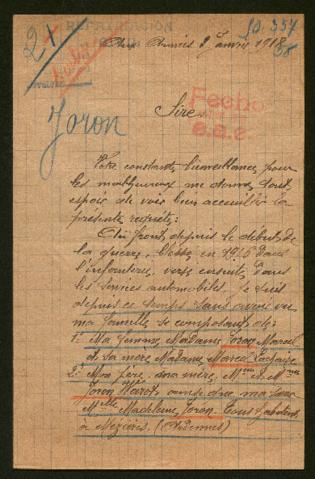 10.357
Aux Armées 9 janvier 1918
Joron
Sire
Fecho
Votre constante bienveillance pour
les malheureux me donne tout
espoir de voir bien accueillir la
présente requête :
Au front depuis le début de
la guerre, blessé en 1916 dans
l'infanterie, versé ensuite dans
les services automobiles, je suis
depuis ce temps sans avoir vu
ma famille se composant de :
1° Ma femme, Madame Joron Marcel
et sa mère Madame Marcel
2° Mon père, ma mère, Mr et Mme
Joron ainsi que ma sœur
Melle Madeleine Joron. Tous habitent
à Mézières. (Ardennes)